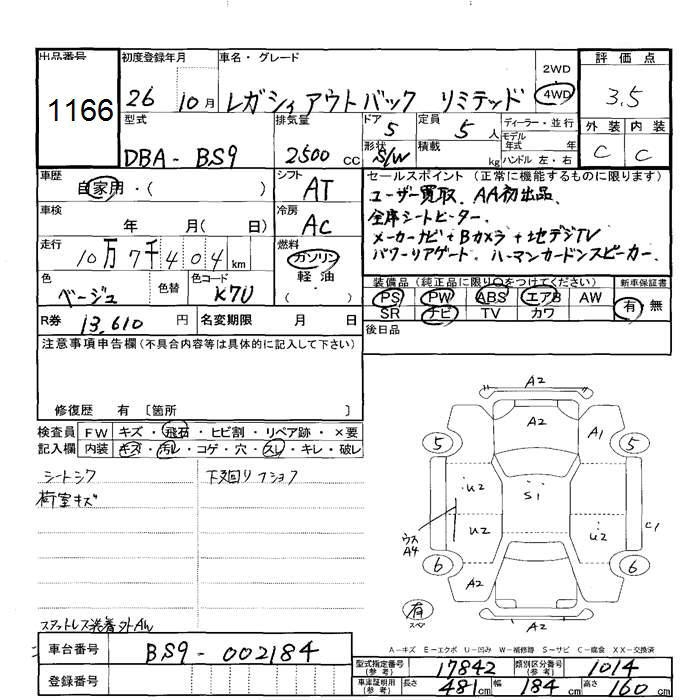 出品番号 初度登録年月 車名・グレード 2WD 4WD 評価点
1166 26 10月 レガシィアウトバック リミテッド 3.5
型式 排気量 ドア 5 定員 5人 ディーラー・並行 外装 内装
DBA-BS9 2500cc 形状 S/W 積載 kg モデル年式 年 ハンドル 左・右 C C
車歴 自家用・( ) シフト AT セールスポイント (正常に機能するものに限ります)
ユーザー買取、AA初出品、
車検 年 月( 日) 冷房 AC 全席シートヒーター、
メーカーナビ+Bカメラ+地デジTV
走行 10万7千404km 燃料 ガソリン 軽油 ・ パワーリアゲート、ハーマンカードンスピーカー、
色 ベージュ 色替 色コード K7U 装備品 (純正品に限り○をつけてください) 新車保証書
PS PW ABS エアB AW 有・無
R券 13,610円 名変期限 月 日 SR ナビ TV カワ
注意事項申告欄 (不具合内容等は具体的に記入して下さい) 後日品
修復歴 有 〔箇所 〕
検査員 FW キズ・飛石・ヒビ割・リペア跡・×要
記入欄 内装 キズ・汚レ・コゲ・穴・スレ・キレ・破レ
シートシワ 下支回りフショク
荷室キズ
A2
A2 A1
5 5
U2 S1
U2 U2 C1
ウス A4
6 6
A2
有 スペ A2
スアットレス装着 外AW
A-キズ E-エクボ U-凹み W-補修跡 S-サビ C-腐食 XX-交換済
車台番号 BS9-002184
型式指定番号 (参考) 17842 類別区分番号 (参考) 1014
登録番号 車庫証明用 (参考) 長さ 481cm 幅 184cm 高さ 160cm